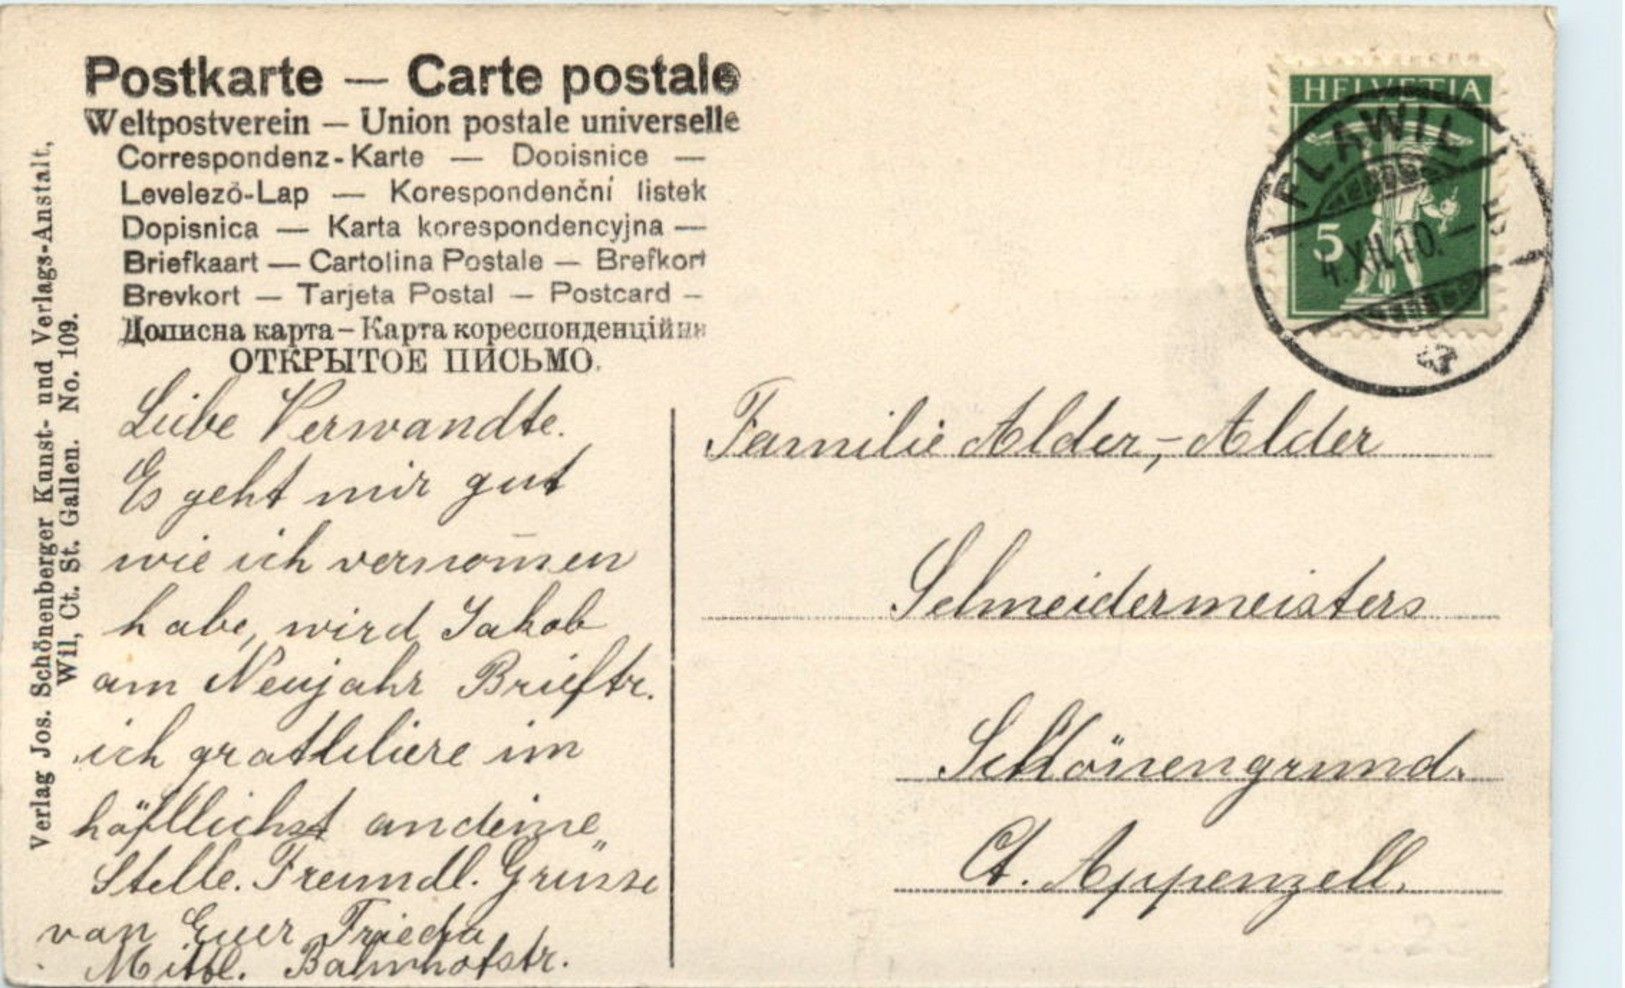 Postkarte — Carte postale
Weltpostverein — Union postale universelle
Correspondenz-Karte — Dopisnice —
Levelező-Lap — Korespondenční listek
Dopisnica — Karta korespondencyjna —
Briefkaart — Cartolina Postale — Brefkort
Brevkort — Tarjeta Postal — Postcard —
Дописна карта – Карта кореспонденційна
ОТКРЫТОЕ ПИСЬМО.
Verlag Jos. Schönenberger Kunst- und Verlags-Anstalt,
Wil, Ct. St. Gallen. No. 109.
HELVETIA
5
FLAWIL
4.XII.10.–5
Liebe Verwandte.
Es geht mir gut
wie ich vernom̅en
habe, wird Jakob
am Neujahr Brieftr.
ich gratuliere im
höfllichst an deine
Stelle. Freundl. Grüsse
van Euer Frieda
Mittl. Bahnhofstr.
Familie Alder,-Alder
Schneidermeisters
Schönengrund.
Ct. Appenzell.